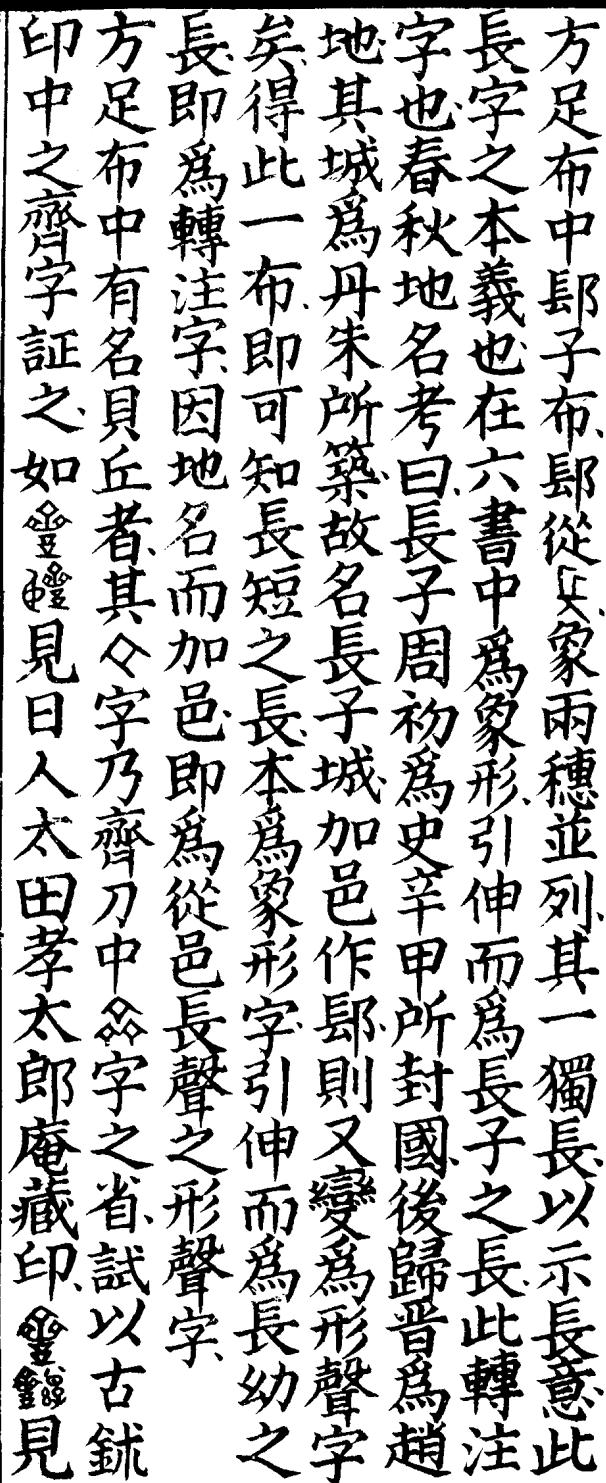 方足布中镸阝子布、镸阝從、象兩穗並列、其一獨長、以示長意、此
長字之本義也、在六書中爲象形、引伸而爲長子之長、此轉注
字也、春秋地名考曰、長子周初爲史辛甲所封國、後歸晋爲趙
地、其城爲丹朱所築、故名長子城、加邑作镸阝、則又變爲形聲字
矣、得此一布、即可知長短之長、本爲象形字、引伸而爲長幼之
長、即爲轉注字、因地名而加邑、即爲從邑長聲之形聲字、
方足布中有名貝丘者、其字乃齊刀中字之省、試以古鉥
印中之齊字証之、如見日人太田孝太郎庵藏印、見